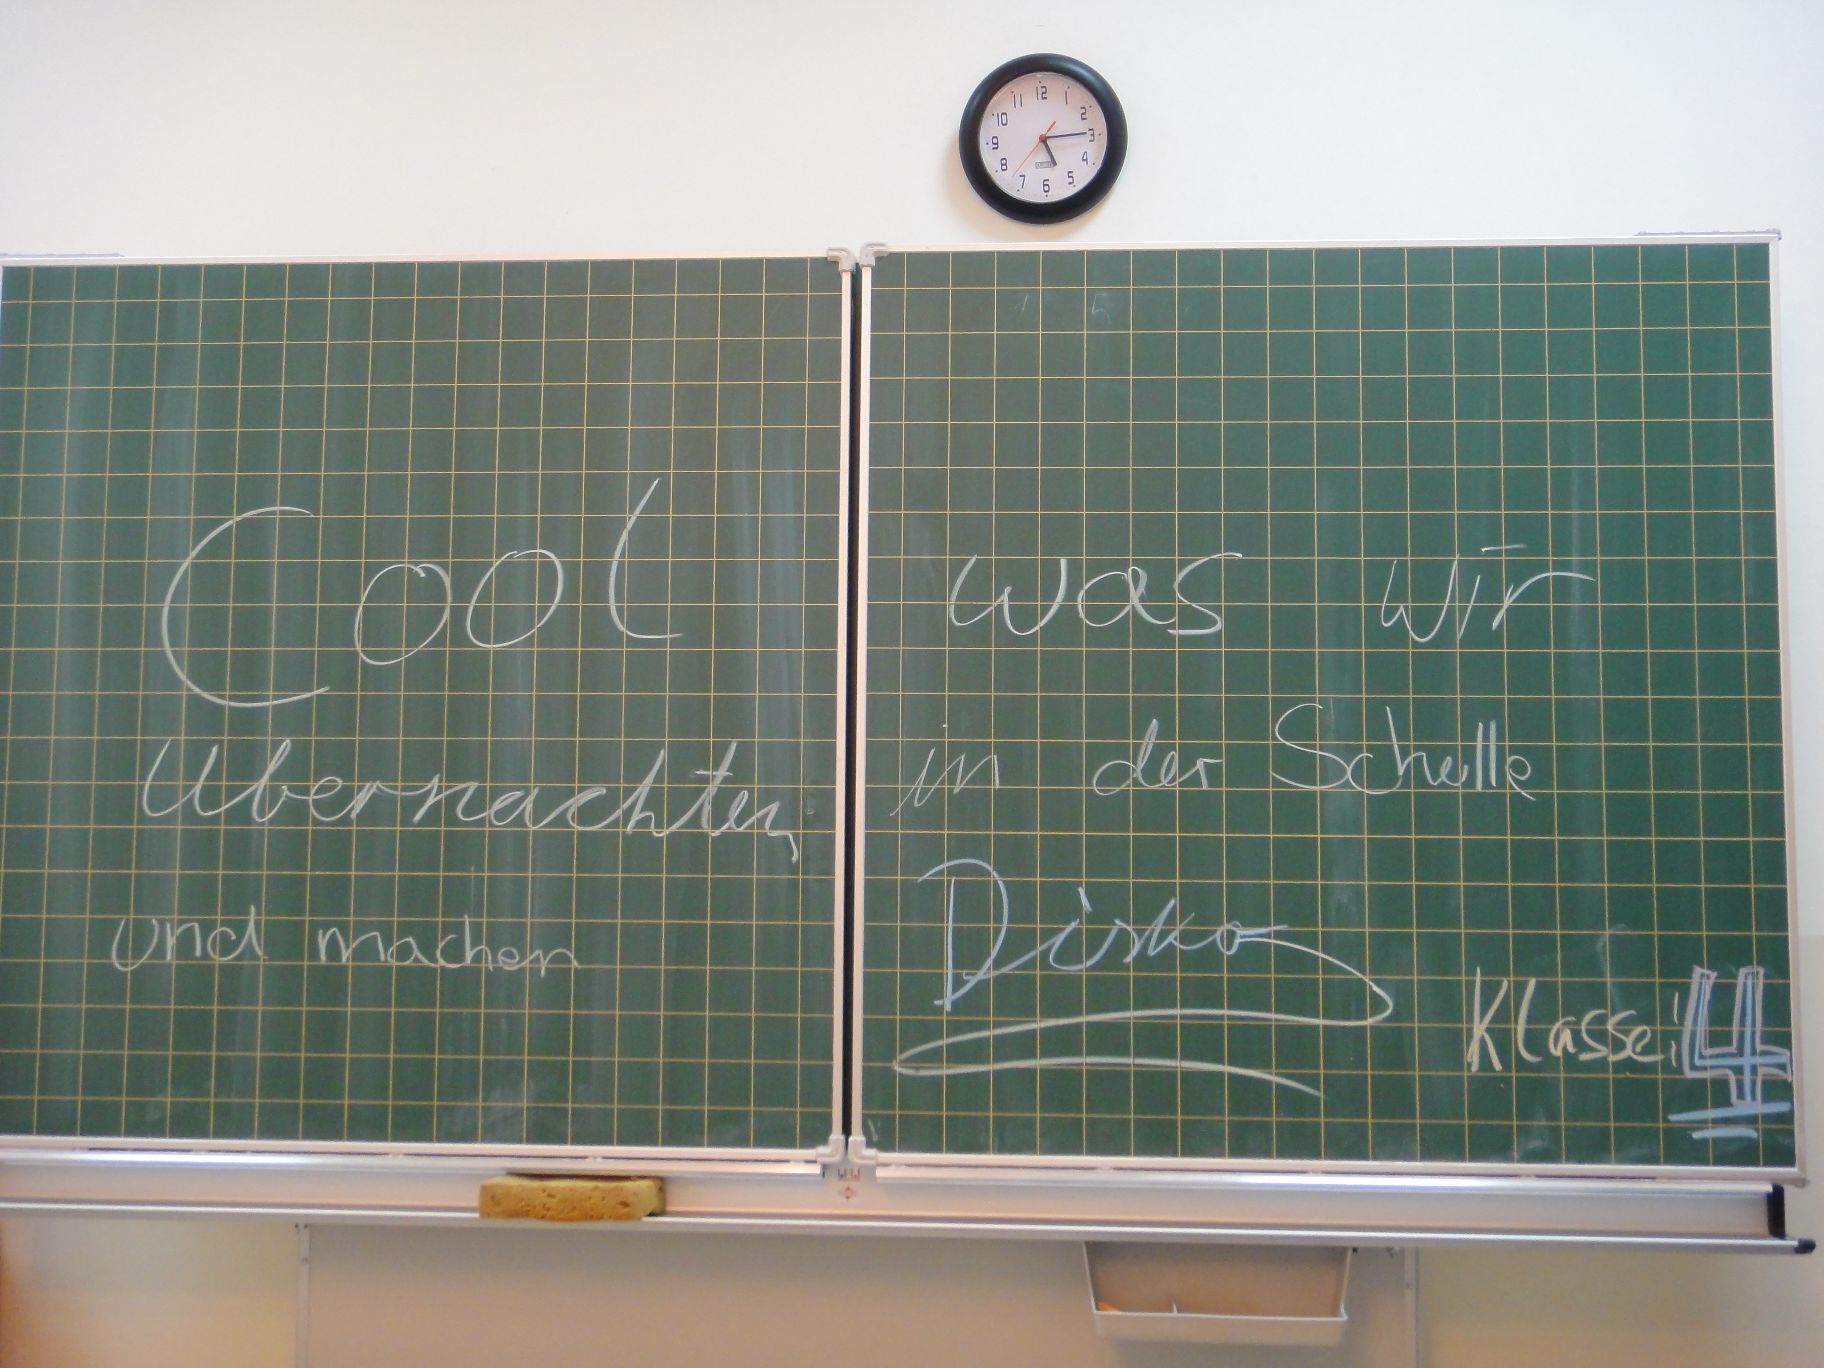 12
11 1
10 2
9 3
8 4
7 5
6
Quartz
Cool was wir
Übernachten in der Schulle
und machen Disko
Klasse: 4